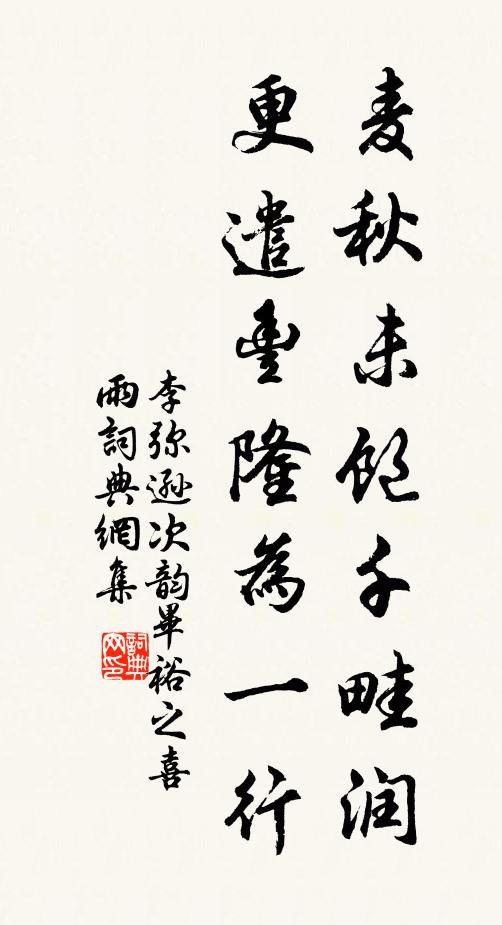 麦秋未饱千畦润
更遣豐隆為一行
李弥遜次韵畢裕之喜
雨詞典網集
詞典网印